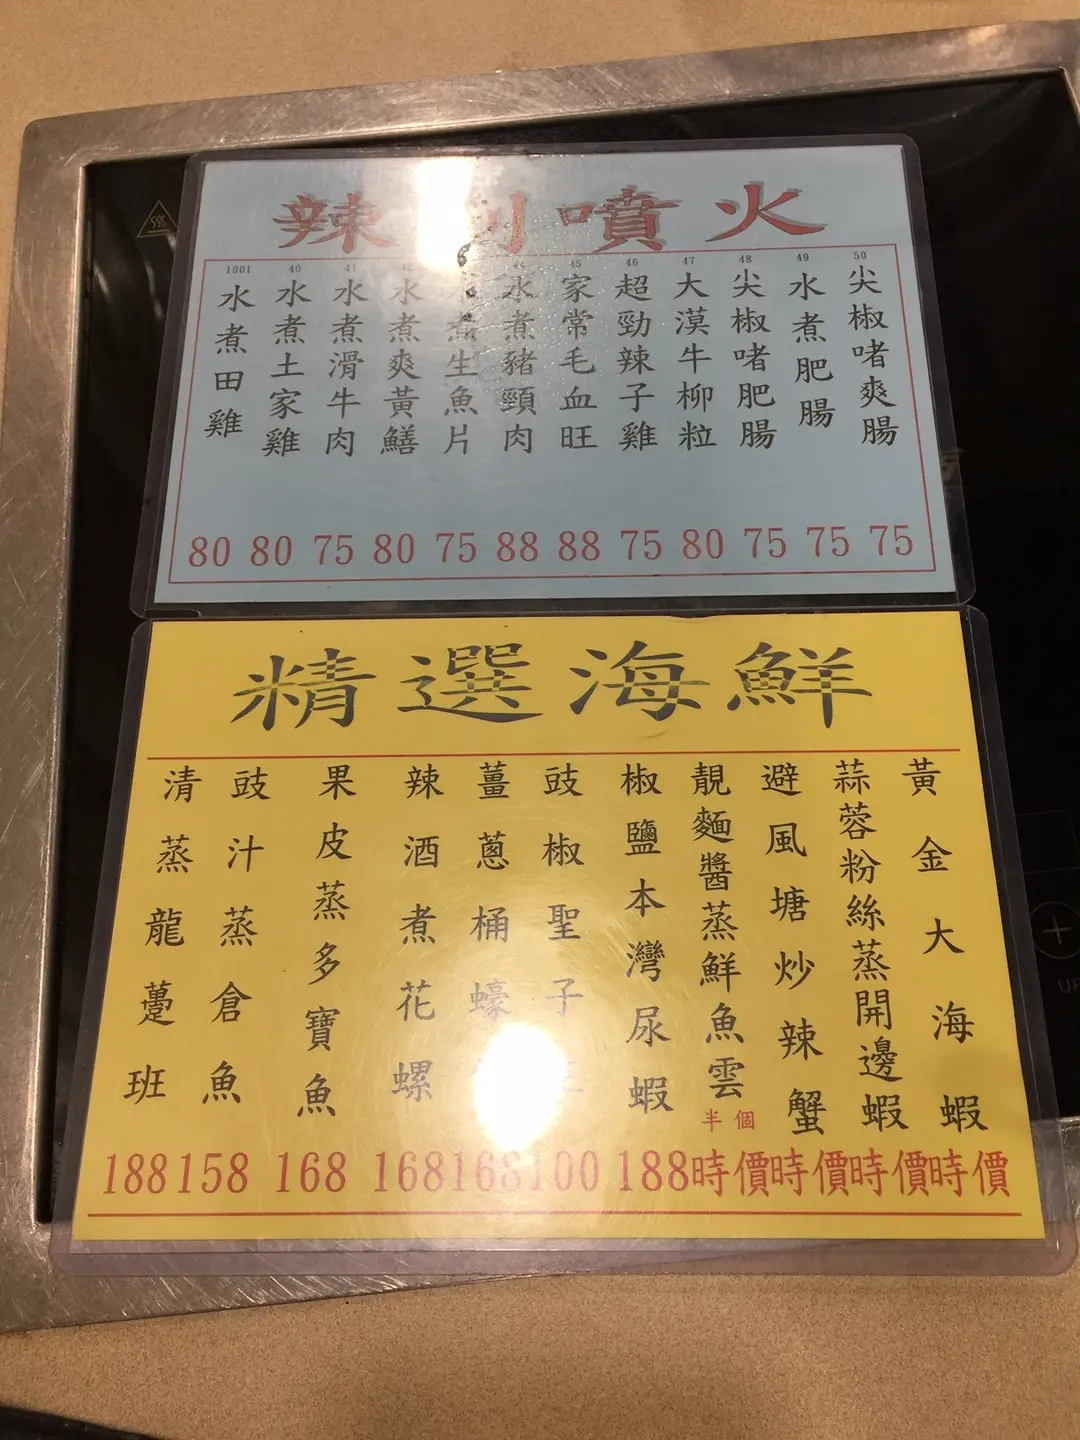 辣到噴火
1001 水煮田雞 80
40 水煮土家雞 80
41 水煮滑牛肉 75
水煮爽黃鱔 80
水煮生魚片 75
44 水煮豬頸肉 88
45 家常毛血旺 88
46 超勁辣子雞 75
47 大漠牛柳粒 80
48 尖椒啫肥腸 75
49 水煮肥腸 75
50 尖椒啫爽腸 75
精選海鮮
清蒸龍躉班 188
豉汁蒸倉魚 158
果皮蒸多寶魚 168
辣酒煮花螺 168
薑蔥桶蠔 168
豉椒聖子 100
椒鹽本灣尿蝦 188
靚麵醬蒸鮮魚雲 半個 時價
避風塘炒辣蟹 時價
蒜蓉粉絲蒸開邊蝦 時價
黃金大海蝦 時價
UP